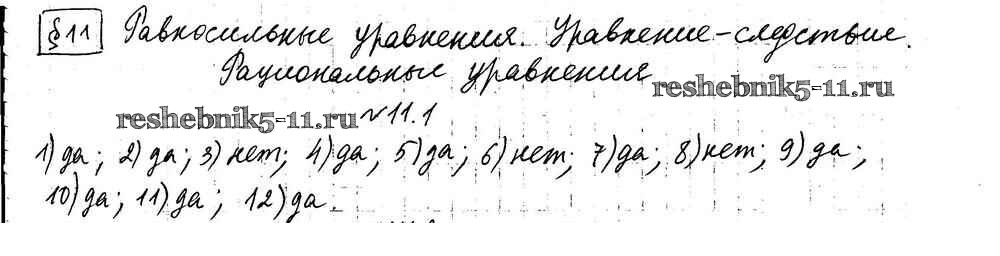 § 11 Равносильные уравнения. Уравнение-следствие.
Рациональные уравнения
reshebnik5-11.ru
reshebnik5-11.ru №11.1
1) да; 2) да; 3) нет; 4) да; 5) да; 6) нет; 7) да; 8) нет; 9) да;
10) да; 11) да; 12) да.